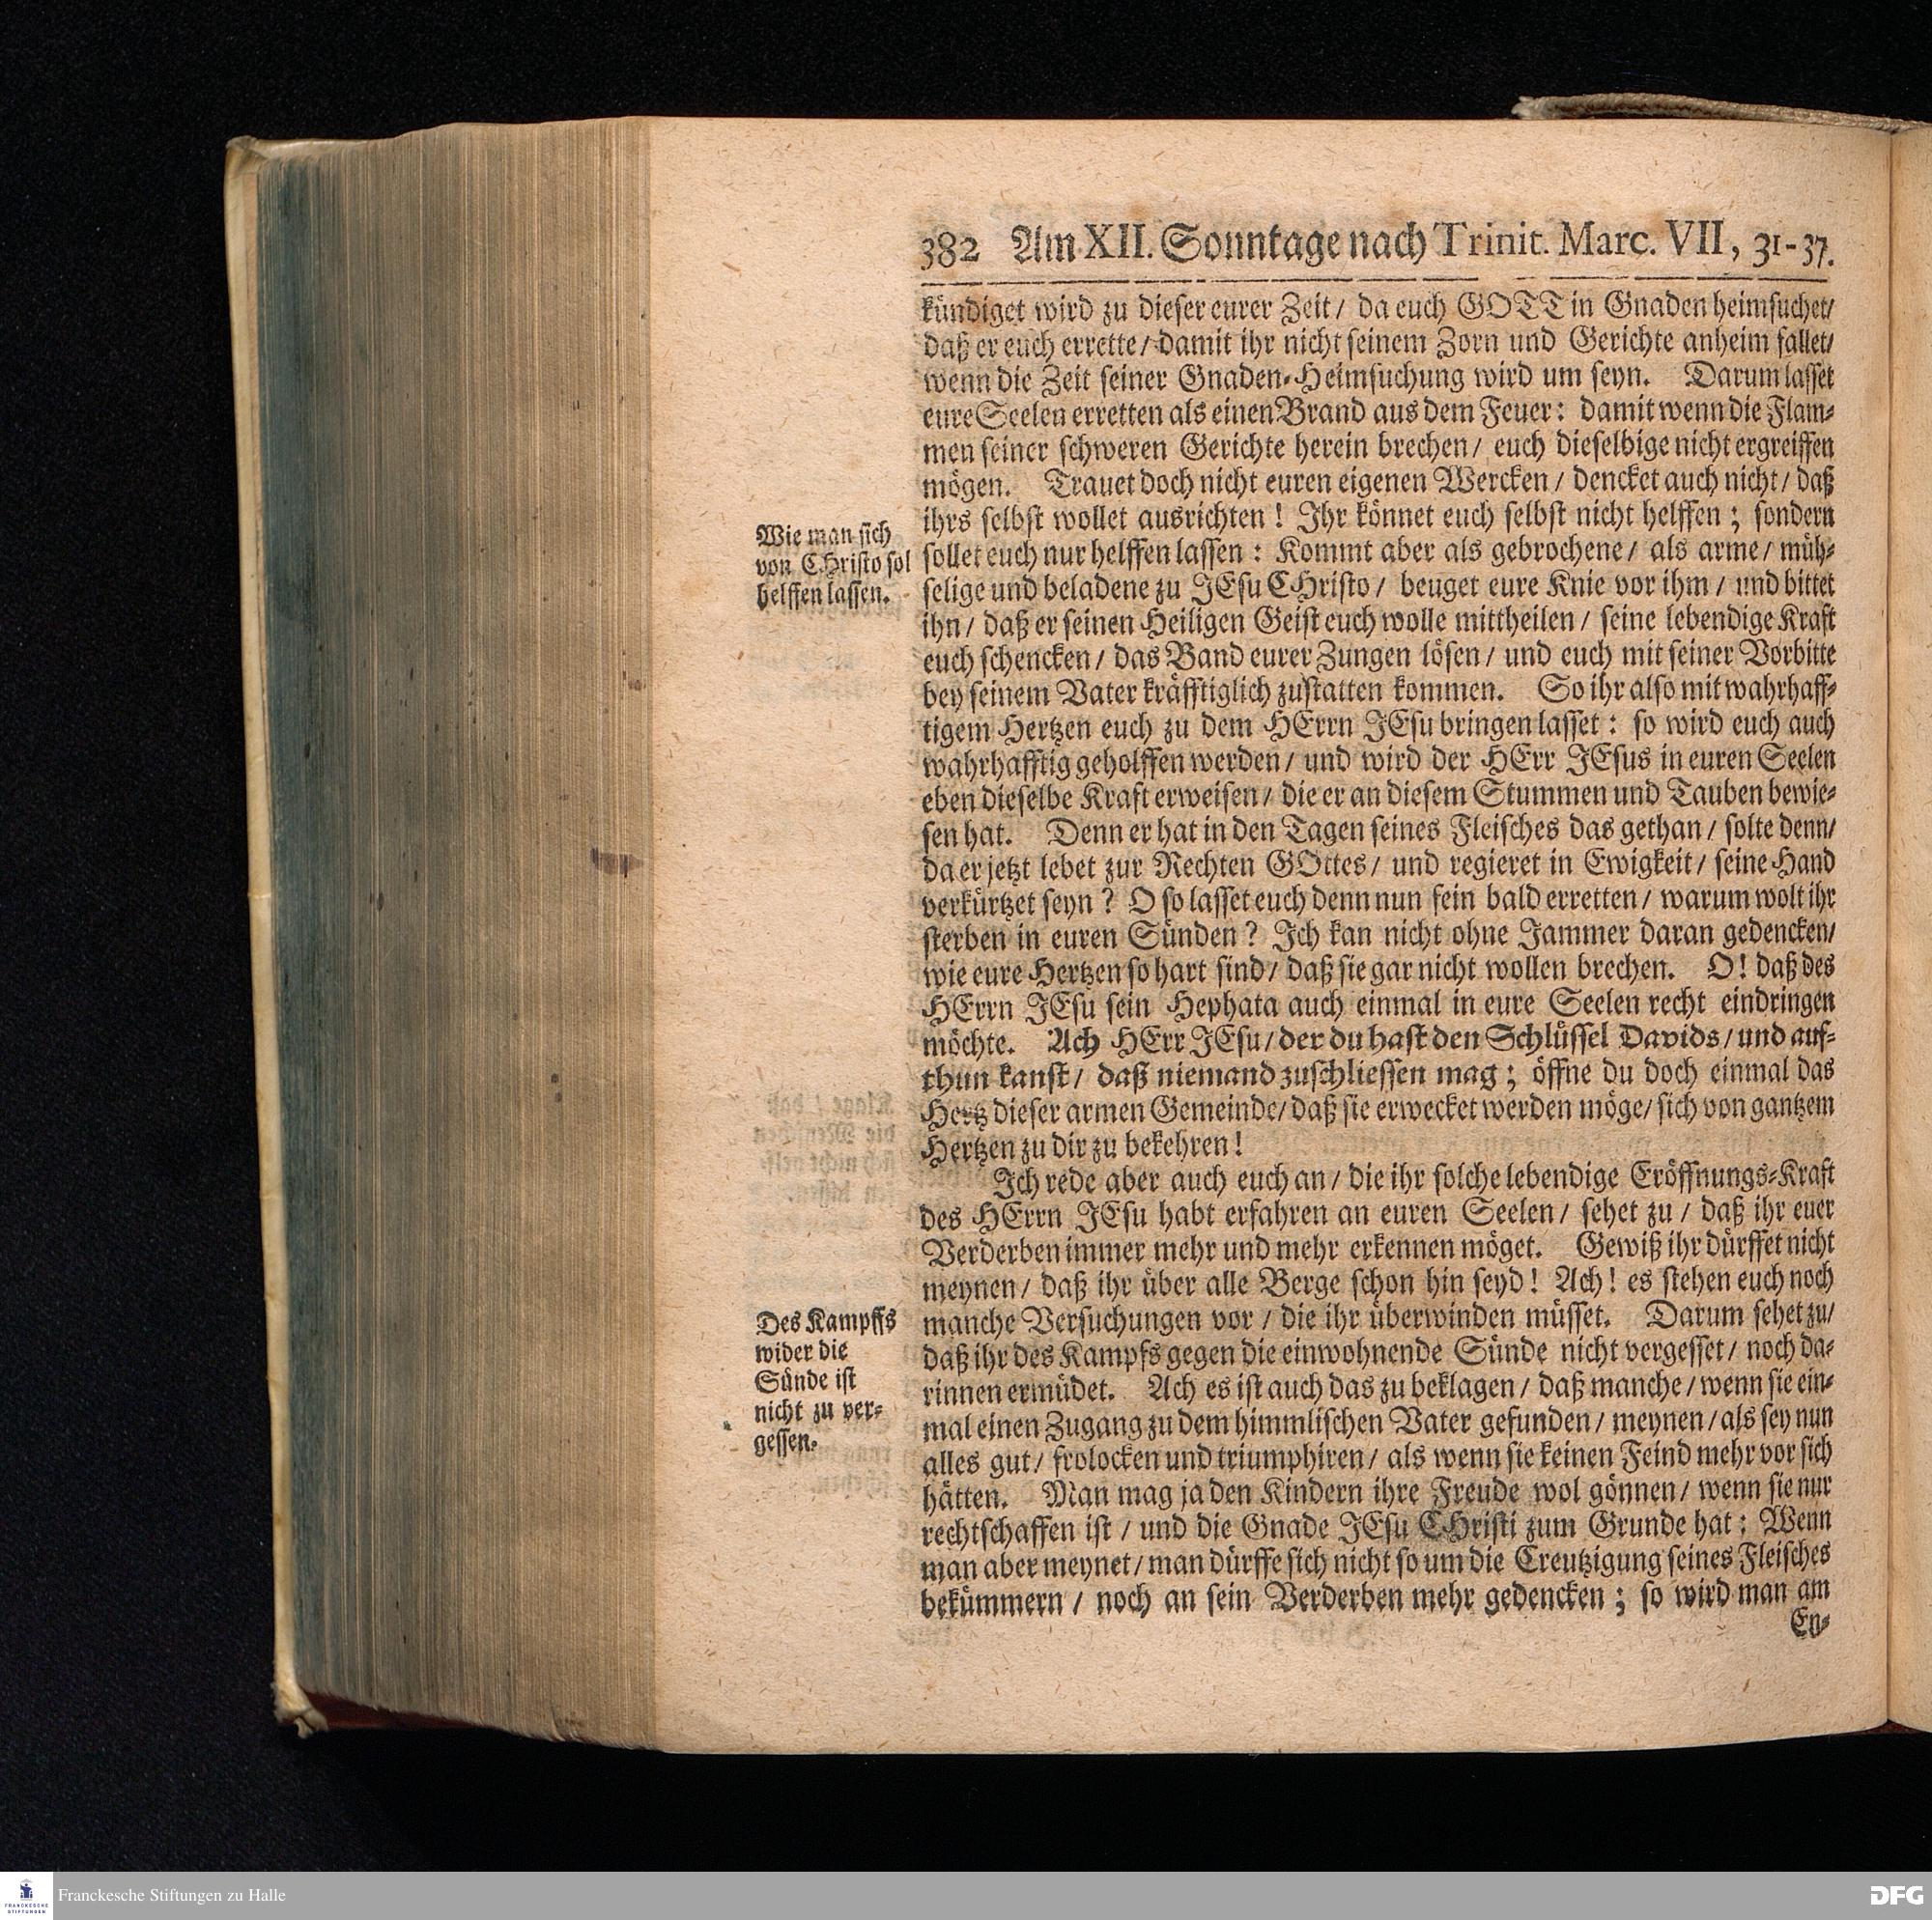 382 Am XII. Sonntage nach Trinit. Marc. VII, 31-37.
kündiget wird zu dieser eurer Zeit / da euch GOTT in Gnaden heimsuchet/
daß er euch errette / damit ihr nicht seinem Zorn und Gerichte anheim fallet/
wenn die Zeit seiner Gnaden-Heimsuchung wird um seyn. Darum lasset
eure Seelen erretten als einen Brand aus dem Feuer: damit wenn die Flam-
men seiner schweren Gerichte herein brechen / euch dieselbige nicht ergreiffen
mögen. Trauet doch nicht euren eigenen Wercken / dencket auch nicht / daß
ihrs selbst wollet ausrichten! Ihr könnet euch selbst nicht helffen; sondern
sollet euch nur helffen lassen: Kommt aber als gebrochene / als arme / müh-
selige und beladene zu JEsu CHristo / beuget eure Knie vor ihm / und bittet
ihn / daß er seinen Heiligen Geist euch wolle mittheilen / seine lebendige Kraft
euch schencken / das Band eurer Zungen lösen / und euch mit seiner Vorbitte
bey seinem Vater kräfftiglich zustatten kommen. So ihr also mit wahrhaff-
tigem Hertzen euch zu dem HErrn JEsu bringen lasset: so wird euch auch
wahrhafftig geholffen werden / und wird der HErr JEsus in euren Seelen
eben dieselbe Kraft erweisen / die er an diesem Stummen und Tauben bewie-
sen hat. Denn er hat in den Tagen seines Fleisches das gethan / solte denn/
da er jetzt lebet zur Rechten GOttes / und regieret in Ewigkeit / seine Hand
verkürtzet seyn? O so lasset euch denn nun fein bald erretten / warum wolt ihr
sterben in euren Sünden? Ich kan nicht ohne Jammer daran gedencken/
wie eure Hertzen so hart sind / daß sie gar nicht wollen brechen. O! daß des
HErrn JEsu sein Hephata auch einmal in eure Seelen recht eindringen
möchte. Ach HErr JEsu / der du hast den Schlüssel Davids / und auf-
thun kanst / daß niemand zuschliessen mag; öffne du doch einmal das
Hertz dieser armen Gemeinde / daß sie erwecket werden möge / sich von gantzem
Hertzen zu dir zu bekehren!
Ich rede aber auch euch an / die ihr solche lebendige Eröffnungs-Kraft
des HErrn JEsu habt erfahren an euren Seelen / sehet zu / daß ihr euer
Verderben immer mehr und mehr erkennen möget. Gewiß ihr dürffet nicht
meynen / daß ihr über alle Berge schon hin seyd! Ach! es stehen euch noch
manche Versuchungen vor / die ihr überwinden müsset. Darum sehet zu/
daß ihr des Kampfs gegen die einwohnende Sünde nicht vergesset / noch da-
rinnen ermüdet. Ach es ist auch das zu beklagen / daß manche / wenn sie ein-
mal einen Zugang zu dem himmlischen Vater gefunden / meynen / als sey nun
alles gut / frolocken und triumphiren / als wenn sie keinen Feind mehr vor sich
hätten. Man mag ja den Kindern ihre Freude wol gönnen / wenn sie nur
rechtschaffen ist / und die Gnade JEsu CHristi zum Grunde hat: Wenn
man aber meynet / man dürffe sich nicht so um die Creutzigung seines Fleisches
bekümmern / noch an sein Verderben mehr gedencken; so wird man am
En-
Wie man sich
von CHristo sol
helffen lassen.
Des Kampffs
wider die
Sünde ist
nicht zu ver-
gessen.
FRANCKESCHE
STIFTUNGEN
Franckesche Stiftungen zu Halle
DFG